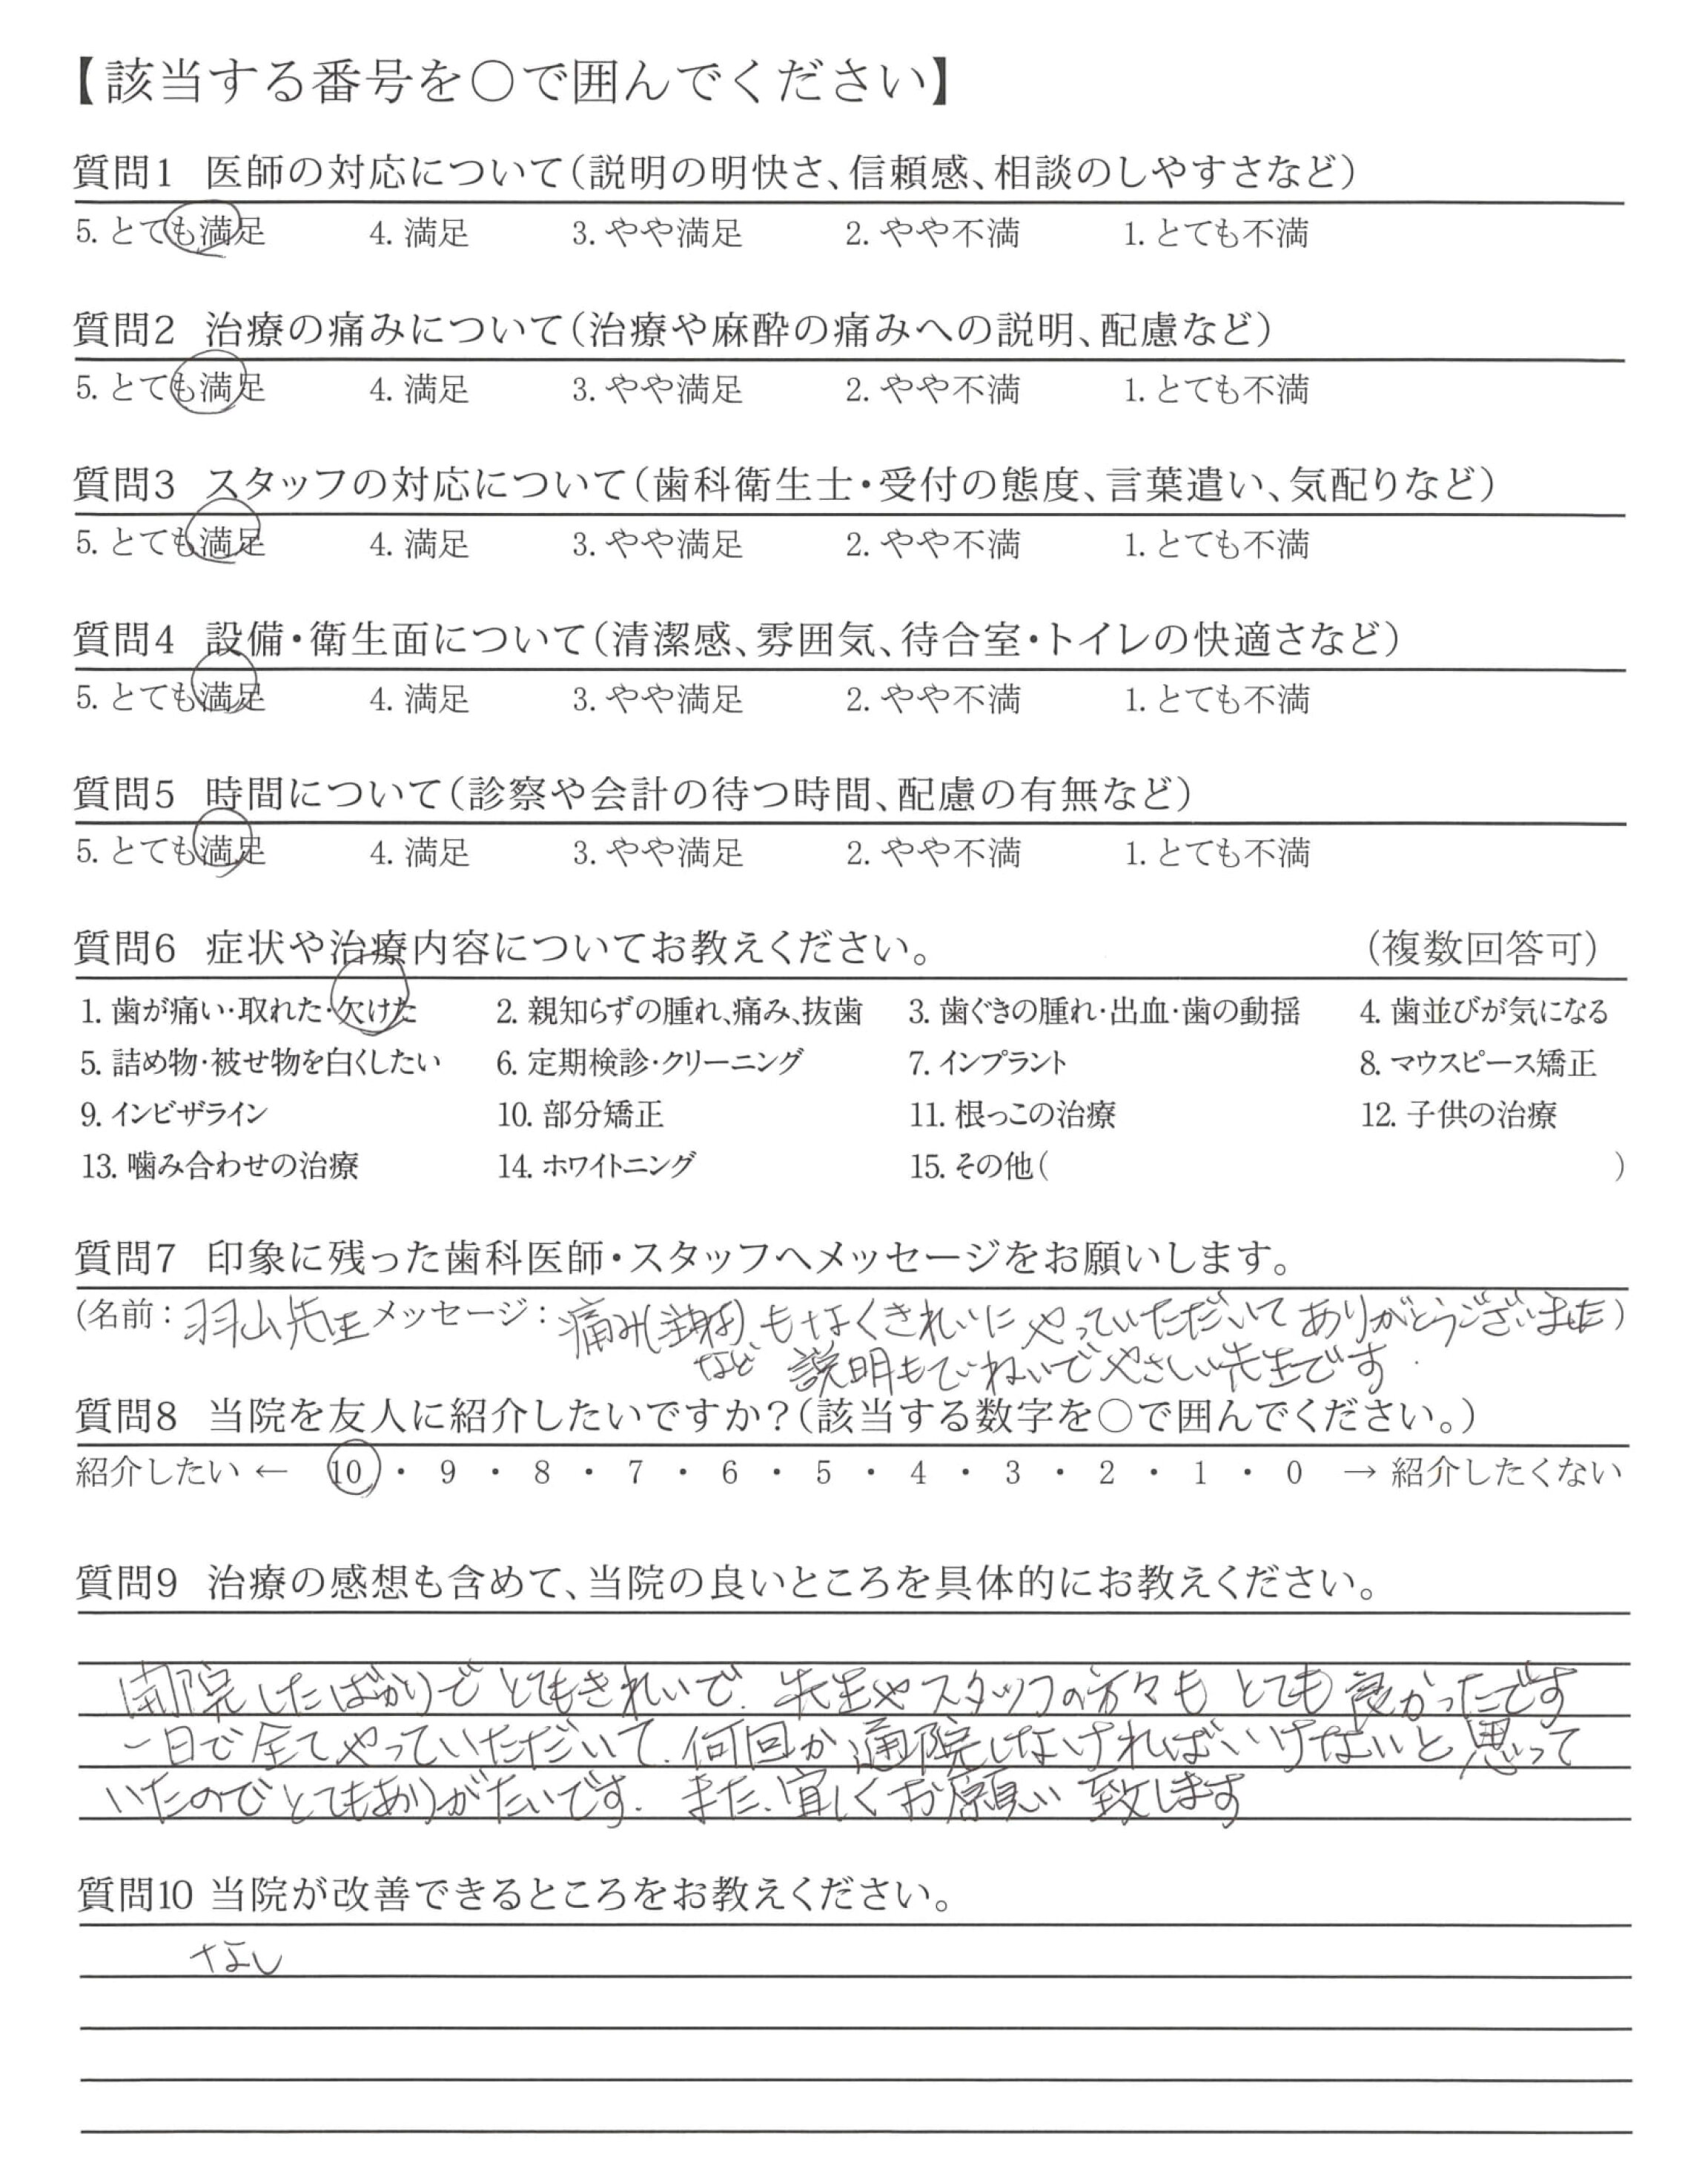 【該当する番号を○で囲んでください】
質問1 医師の対応について(説明の明快さ、信頼感、相談のしやすさなど)
5. とても満足 4. 満足 3. やや満足 2. やや不満 1. とても不満
質問2 治療の痛みについて(治療や麻酔の痛みへの説明、配慮など)
5. とても満足 4. 満足 3. やや満足 2. やや不満 1. とても不満
質問3 スタッフの対応について(歯科衛生士・受付の態度、言葉遣い、気配りなど)
5. とても満足 4. 満足 3. やや満足 2. やや不満 1. とても不満
質問4 設備・衛生面について(清潔感、雰囲気、待合室・トイレの快適さなど)
5. とても満足 4. 満足 3. やや満足 2. やや不満 1. とても不満
質問5 時間について(診察や会計の待つ時間、配慮の有無など)
5. とても満足 4. 満足 3. やや満足 2. やや不満 1. とても不満
質問6 症状や治療内容についてお教えください。 (複数回答可)
1. 歯が痛い・取れた・欠けた 2. 親知らずの腫れ、痛み、抜歯 3. 歯ぐきの腫れ・出血・歯の動揺 4. 歯並びが気になる
5. 詰め物・被せ物を白くしたい 6. 定期検診・クリーニング 7. インプラント 8. マウスピース矯正
9. インビザライン 10. 部分矯正 11. 根っこの治療 12. 子供の治療
13. 噛み合わせの治療 14. ホワイトニング 15. その他( )
質問7 印象に残った歯科医師・スタッフへメッセージをお願いします。
(名前: 羽山先生 メッセージ: 痛み もなくきれいに やっていただいて ありがとうございました)
など 説明もていねいで やさしい先生です
質問8 当院を友人に紹介したいですか?(該当する数字を○で囲んでください。)
紹介したい ← 10 ・ 9 ・ 8 ・ 7 ・ 6 ・ 5 ・ 4 ・ 3 ・ 2 ・ 1 ・ 0 → 紹介したくない
質問9 治療の感想も含めて、当院の良いところを具体的にお教えください。
開院したばかりで とてもきれいで、先生やスタッフの方々も とても 良かったです
一日で 全て やっていただいて、何回か 通院しなければいけないと 思って
いたのでとてもありがたいです。また、宜しくお願い 致します
質問10 当院が改善できるところをお教えください。
なし